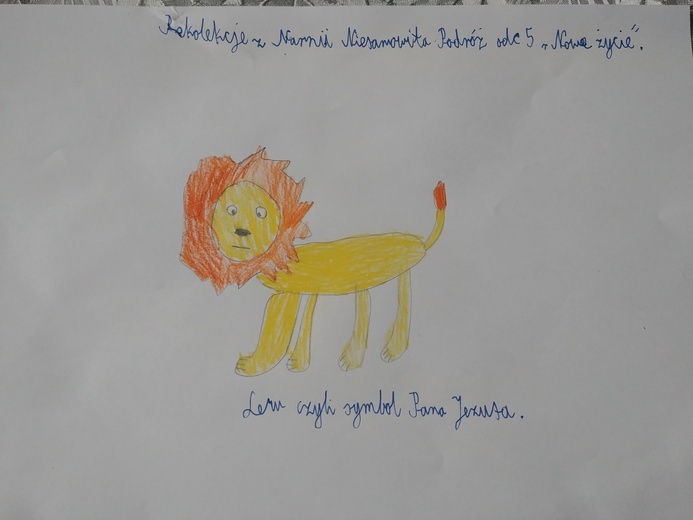 Rekolekcje z Narnii Niesamowita Podróż odc 5 „Nowe życie”.
Lew czyli symbol Pana Jezusa.